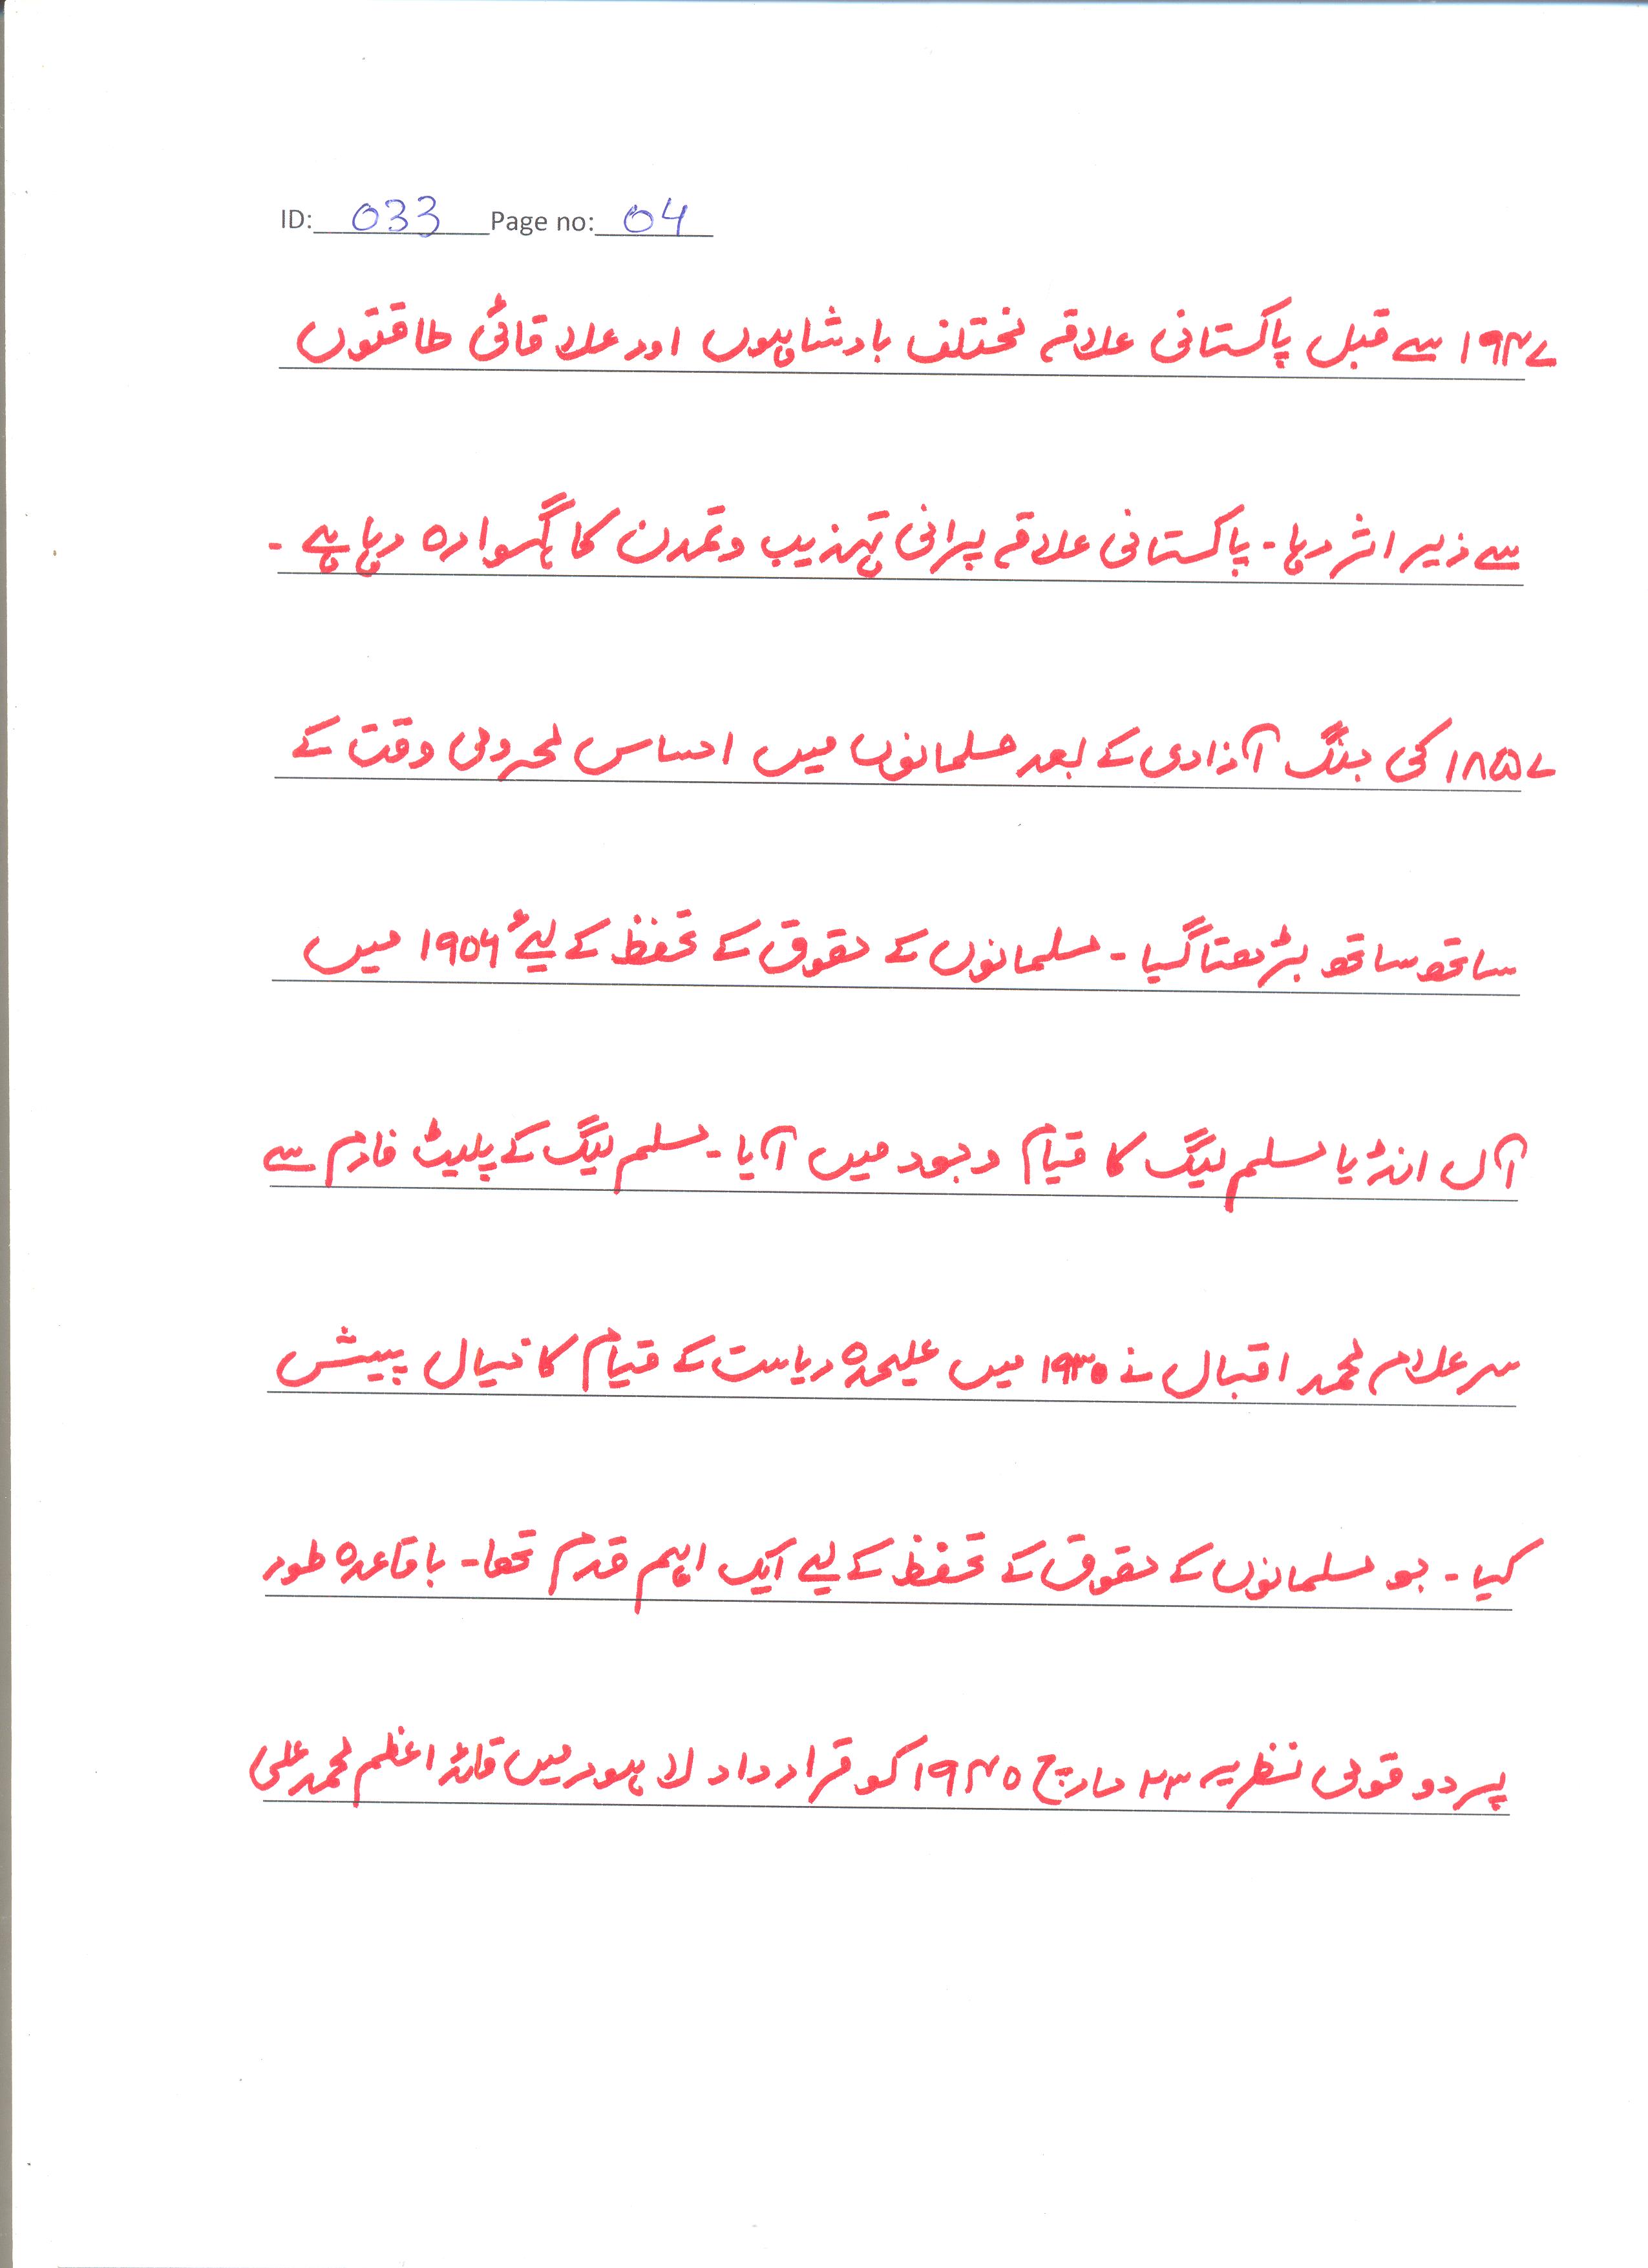 ID: 033 Page no: 04
۱۹۴۷ سے قبل پاکستانی علاقہ مختلف بادشاہوں اور علاقائی طاقتوں
سے زیر اثر رہا - پاکستانی علاقہ پرانی تہذیب وتمدن کا گہوارہ رہا ہے -
۱۸۵۷ کی جنگ آزادی کے بعد مسلمانوں میں احساس محرومی وقت کے
ساتھ ساتھ بڑھتا گیا - مسلمانوں کے حقوق کے تحفظ کے لیئے ۱۹۰۶ میں
آل انڈیا مسلم لیگ کا قیام وجود میں آیا - مسلم لیگ کے پلیٹ فارم سے
سر علامہ محمد اقبال نے ۱۹۳۰ میں علیحدہ ریاست کے قیام کا خیال پیش
کیا - جو مسلمانوں کے حقوق کے تحفظ کے لیے ایک اہم قدم تھا - باقاعدہ طور
پر دو قومی نظریہ ۲۳ مارچ ۱۹۴۰ کو قرارداد لاہور میں قائد اعظم محمد علی